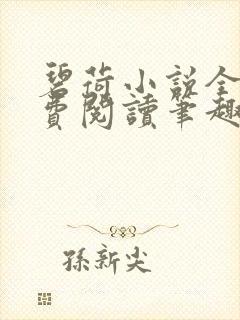 碧荷小说全
费閱讀筆趣
孫新尖